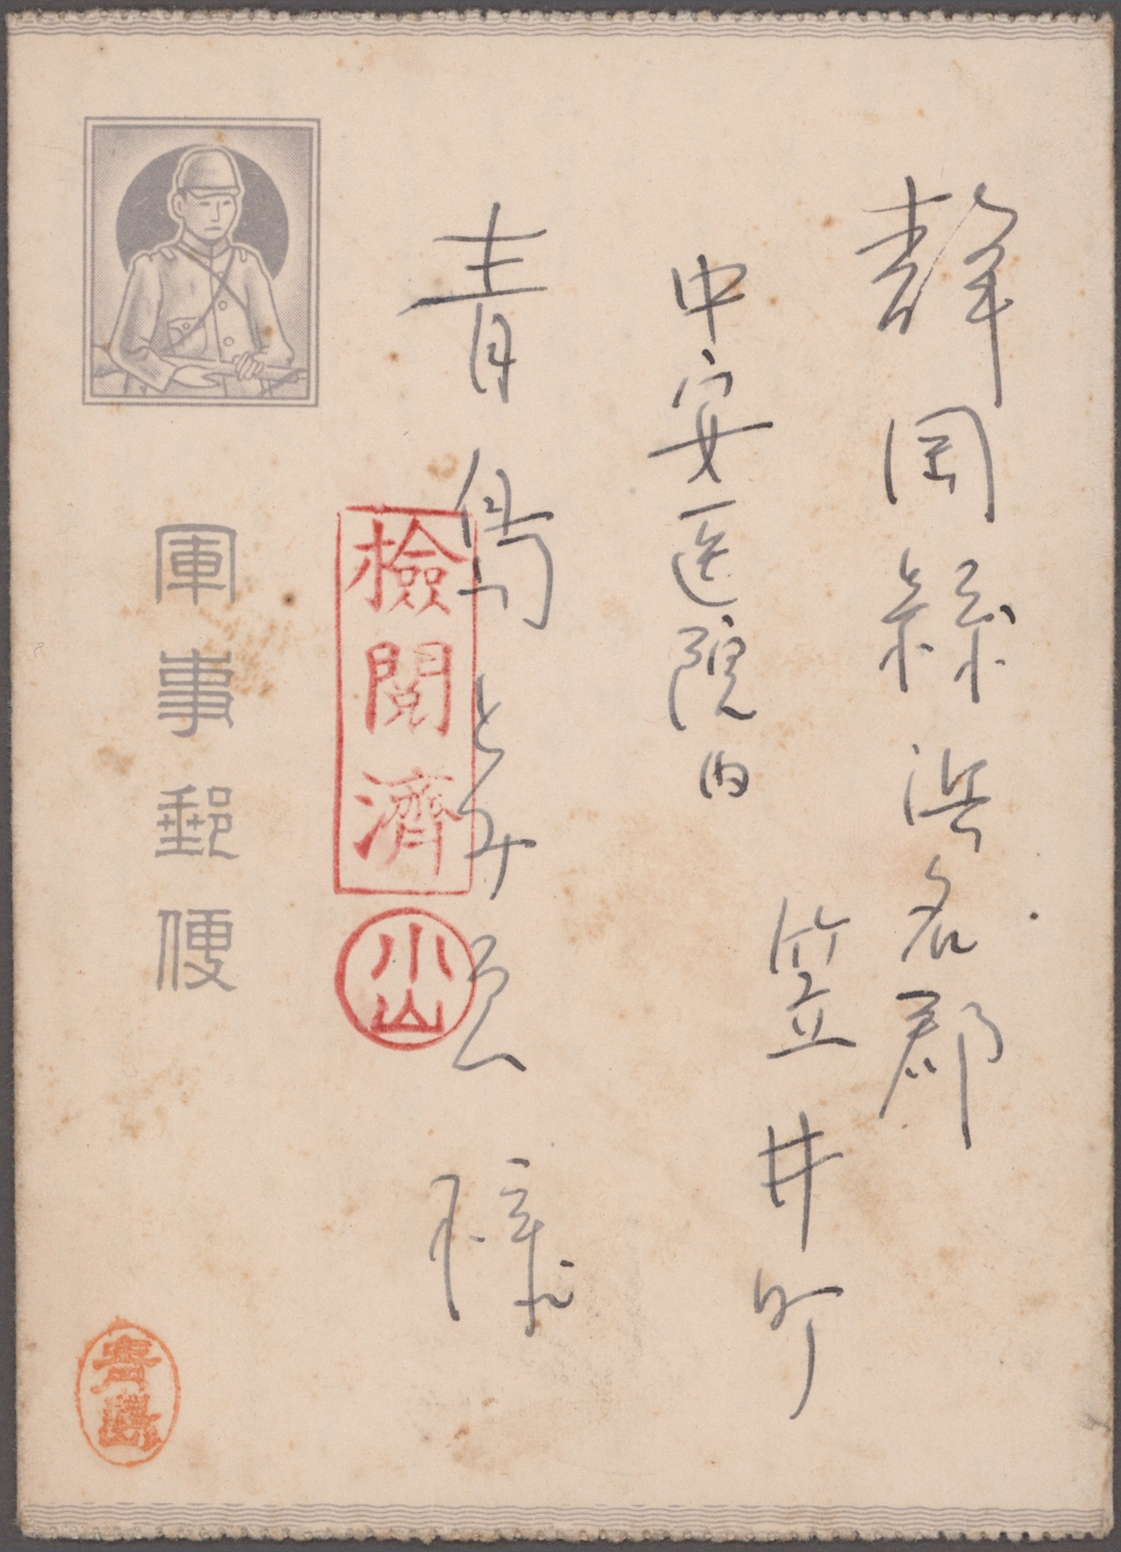 静岡縣浜名郡
笠井町
中安医院内
青島とみ゛様
軍事郵便
檢閲濟
小山
青島